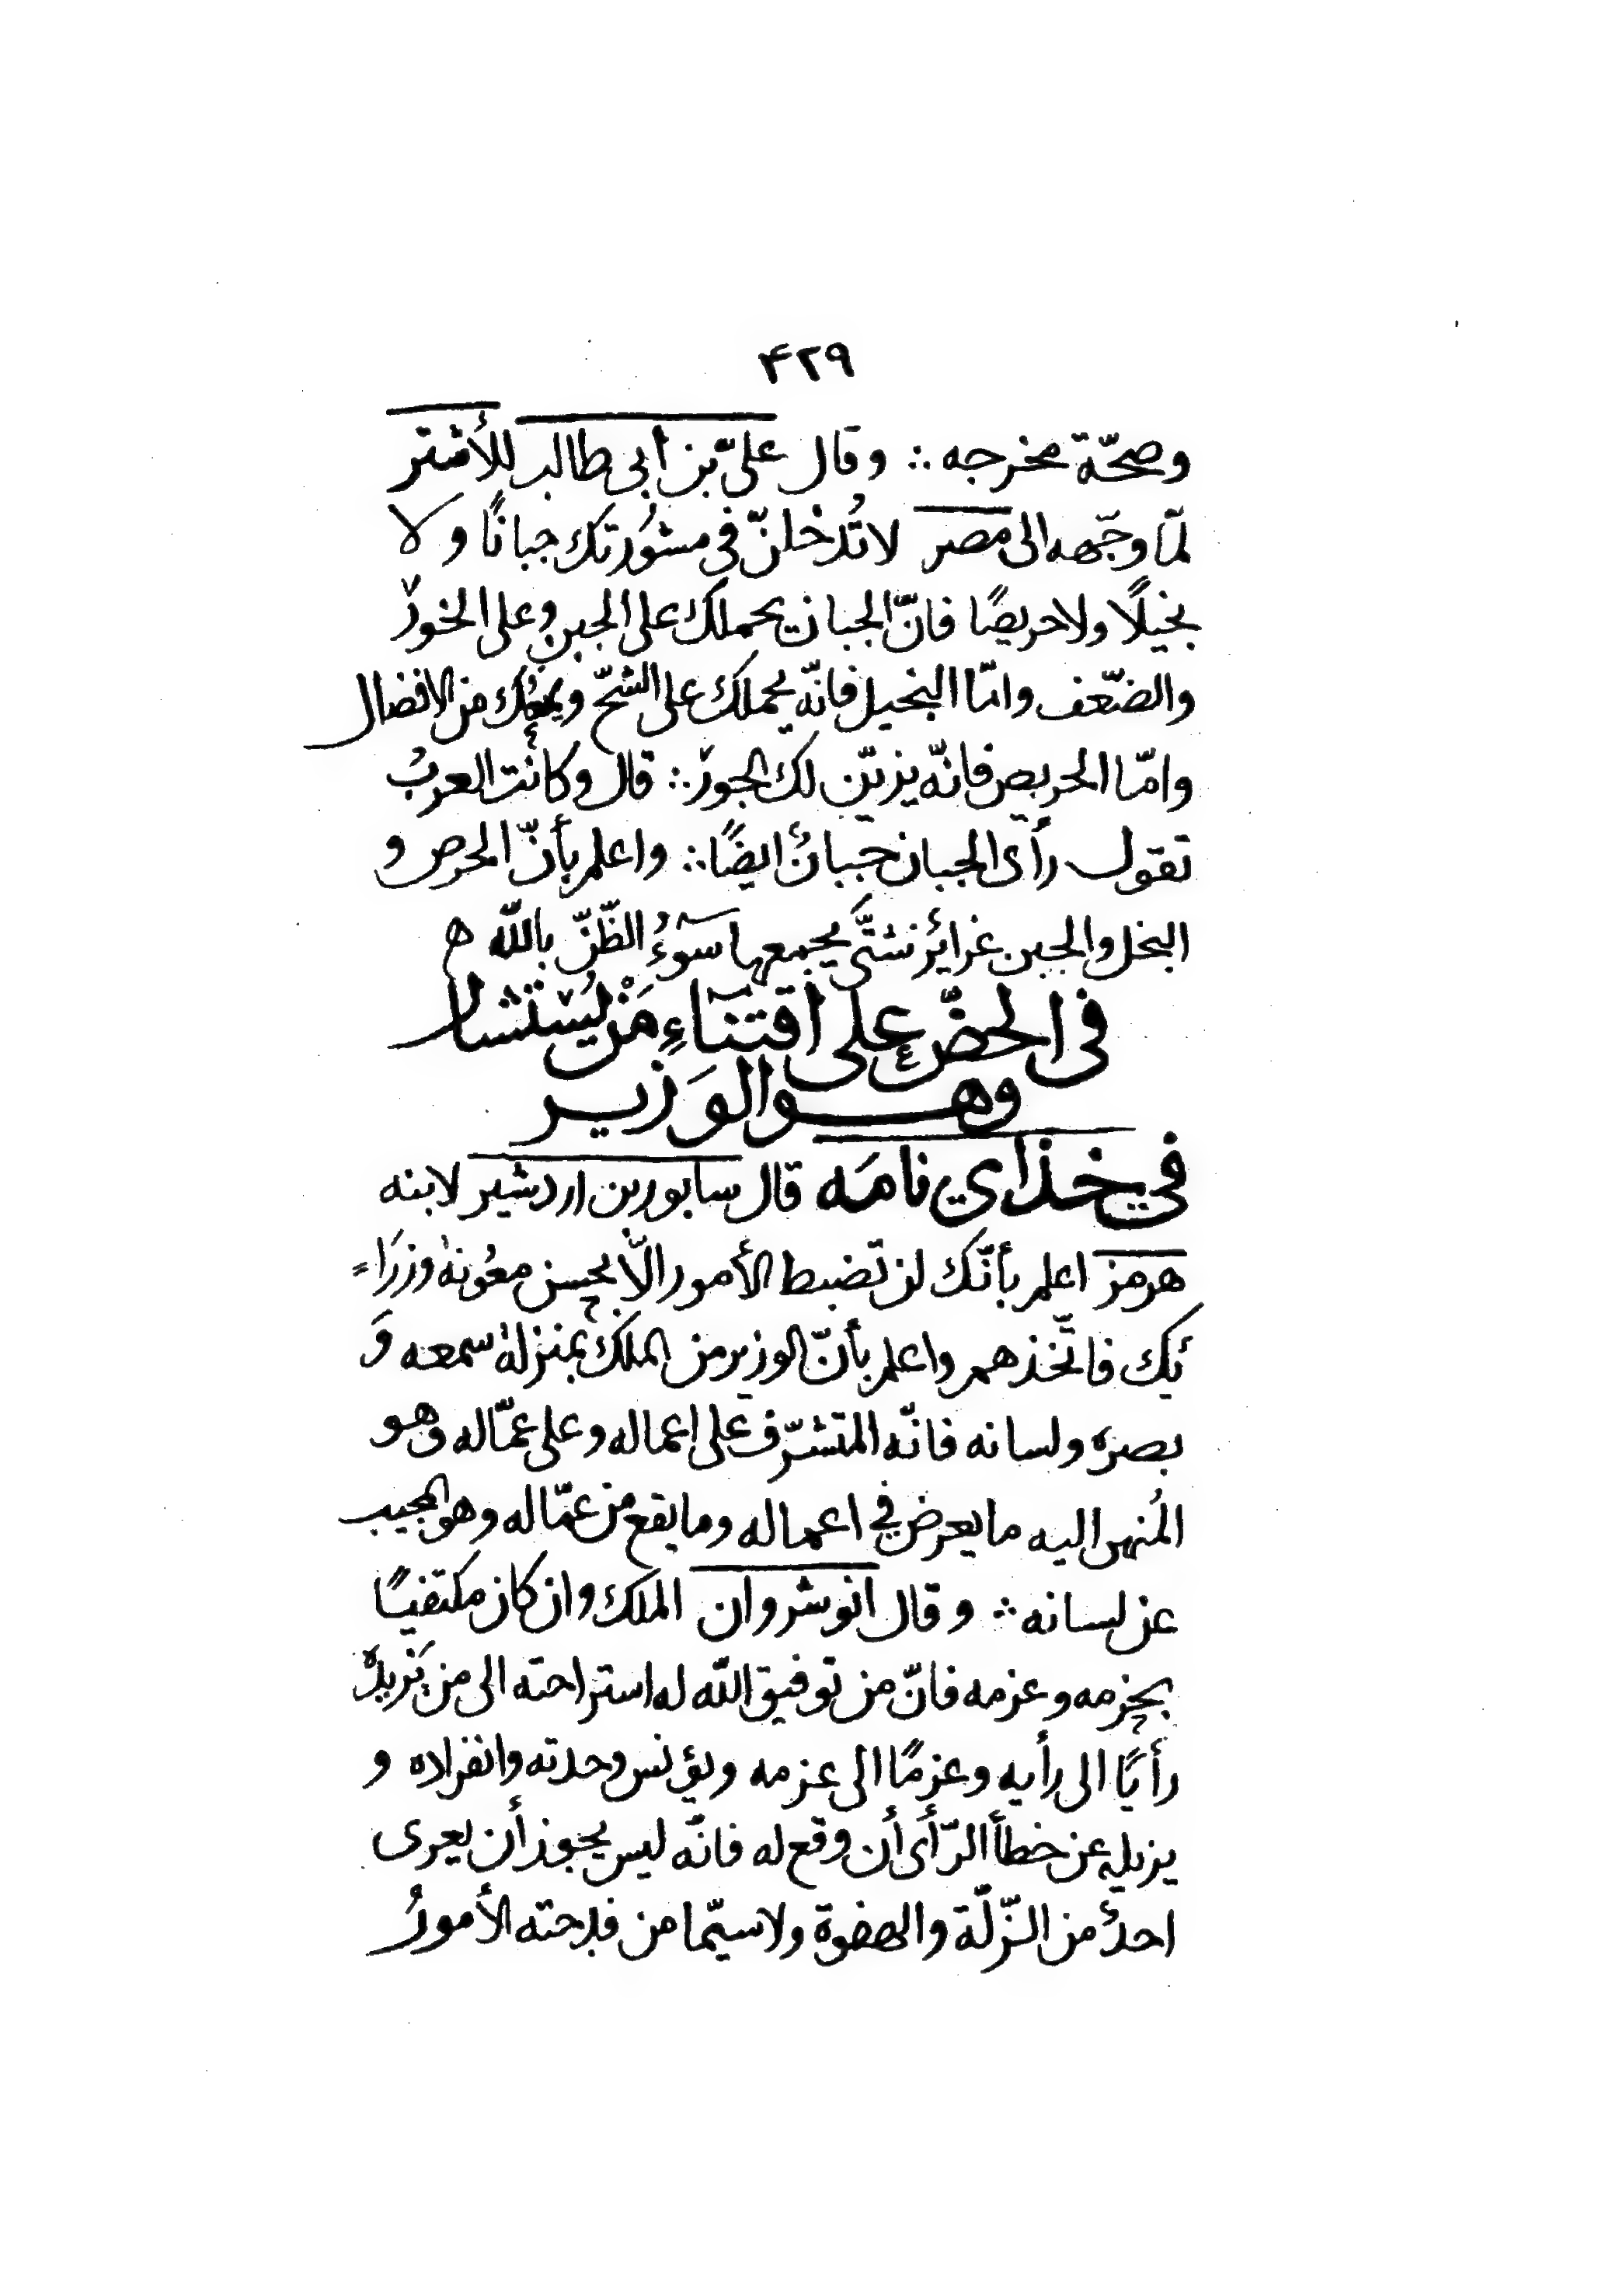 ۴۲۹
وصحّة مخرجه ∴ وقال علىّ بن أبى طالب للأشتر
لمّا وجّهه الى مصر لا تُدخلنّ فى مشوُرتك جبانًا ولا
بخيلًا ولا حريصًا فانّ الجبان يحملك على الجبن وعلى الخور
والضّعف وامّا البخيل فانّه يحملك على الشحّ ويمنعك من الافضال
وامّا الحريص فانّه يزيّن لك الجور ∴ قال وكانت العربُ
تقول رأى الجبان جبانٌ ايضًا ∴ واعلم بأنّ الحرص و
البخل والجبن غرائز شتّى يجمعها سوٓءُ الظّنّ بالله ه
فى الحضّ على اقتنآءِ مَنْ يُسْتشار
وهو الوَزير
في خذاي نامَه قال سابور بن اردشير لابنه
هرمز اعلم بأنّك لن تضبط الأمور الّا بحسن معُونة وزرَاء
ئك فاتّخذهم واعلم بأنّ الوزير من الملك بمنزلة سمعه وَ
بصره ولسانه فانّه المتشرّف على اعماله وعلى عمّاله وهو
المُنهى اليه ما يعرض في اعماله وما يقع من عمّاله وهو المجيب
عن لسانه ∴ وقال انوشروان الملك وان كان مكتفيًا
بحزمه وعزمه فانّ من توفيق الله له استراحته الى من يَزيدُه
رأيًا الى رأيه وعزمًا الى عزمه ويؤنس وحدته وانفراده و
يزيله عن خطأ الرّأى أن وقع له فانّه ليس يجوز أن يعرى
احدٌ من الزّلّة والهفوة ولا سيّما من فدحته الأمورُ